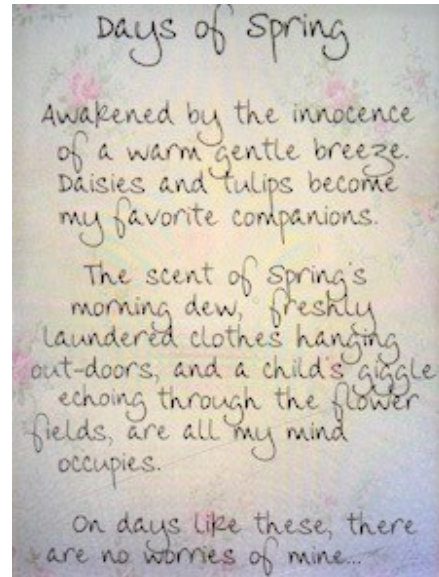 Days of Spring
Awakened by the innocence
of a warm gentle breeze.
Daisies and tulips become
my favorite companions.
The scent of Spring's
morning dew, freshly
laundered clothes hanging
out-doors, and a child's giggle
echoing through the flower
fields, are all my mind
occupies.
On days like these, there
are no worries of mine...